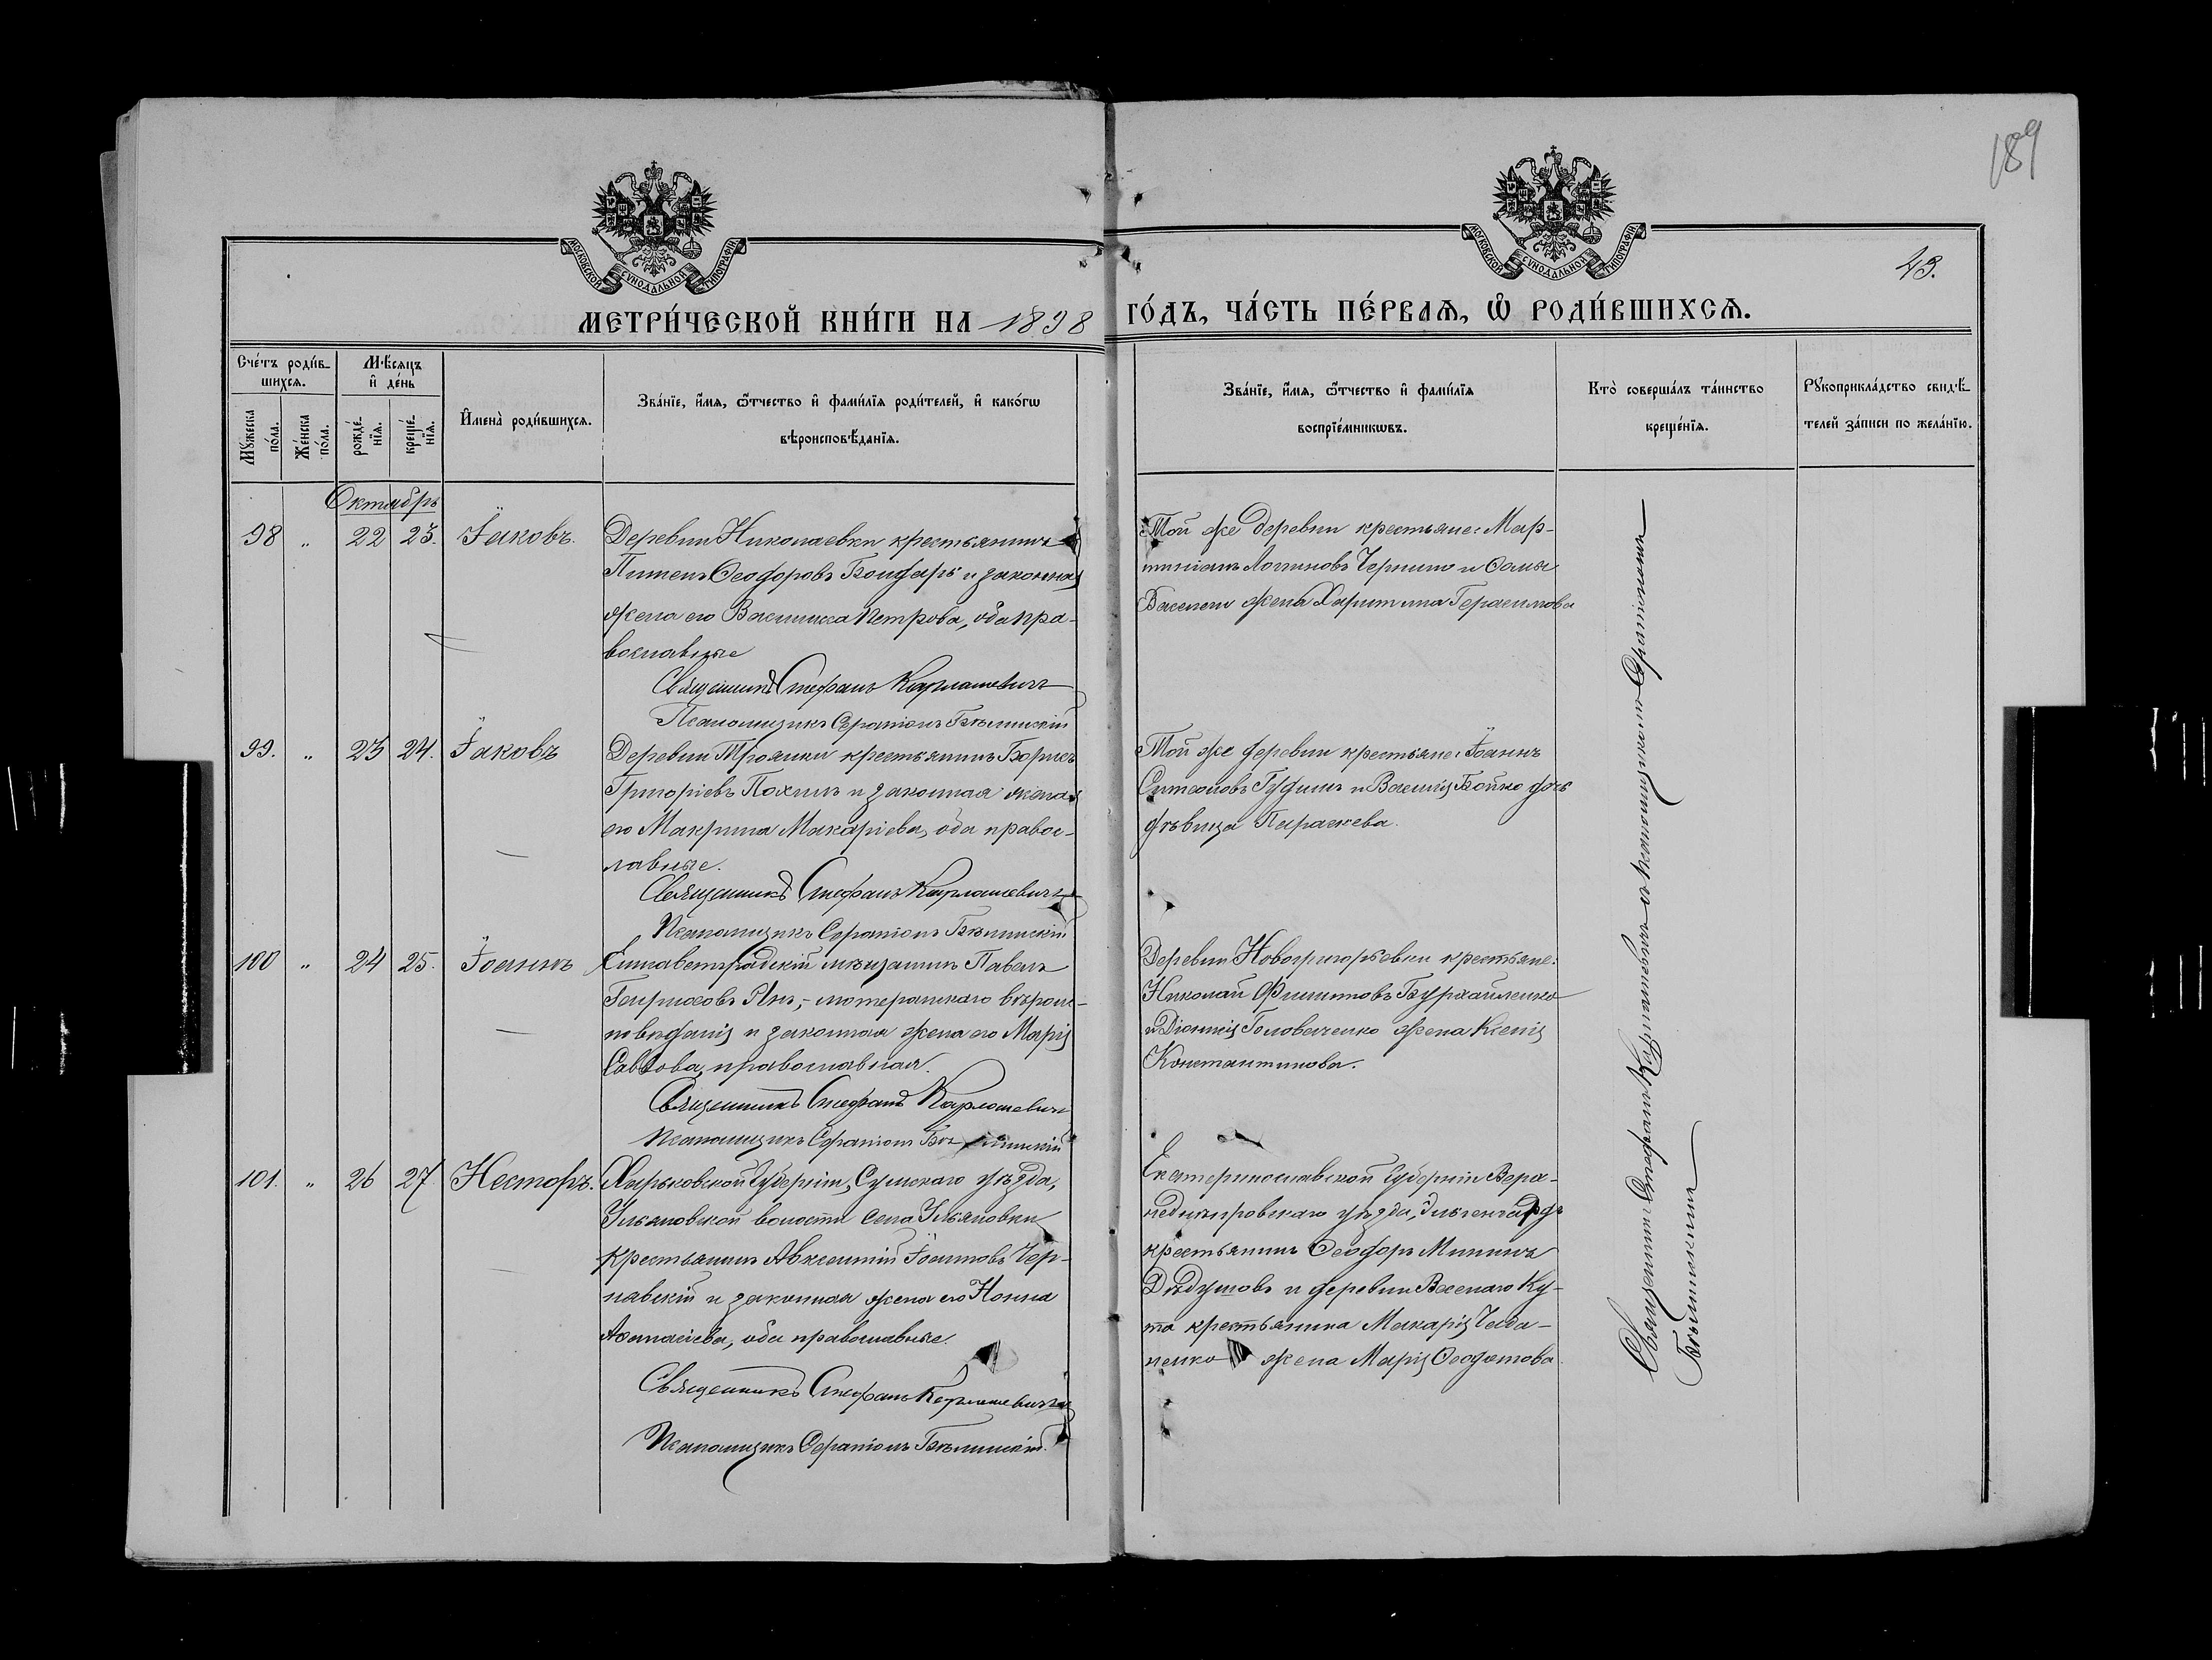 189
МОСКОВСКОЙ СѴНОДАЛЬНОЙ ТИПОГРАФІИ
МОСКОВСКОЙ СѴНОДАЛЬНОЙ ТИПОГРАФІИ
43.
МЕТРИ́ЧЕСКОЙ КНИ́ГИ НА 1898 ГО́ДЪ, ЧА́СТЬ ПЕ́РВАѦ, Ѡ҆ РОДИ́ВШИХСѦ.
Сче́тъ роди́вшихсѧ.
Мѣ́сѧцъ и҆ де́нь
Мꙋ́жеска по́ла.
Же́нска по́ла.
рожде́нїѧ.
креще́нїѧ.
И҆мена̀ роди́вшихсѧ.
Зва́нїе, и҆́мѧ, ѻ҆́тчество и҆ фами́лїѧ роди́телей, и҆ како́гѡ
вѣроисповѣ́данїѧ.
Зва́нїе, и҆́мѧ, ѻ҆́тчество и҆ фами́лїѧ
воспрїе́мникѡвъ.
Кто̀ соверша́лъ та́инство
креще́нїѧ.
Рꙋкоприкла́дство свидѣ́телей за́писи по жела́нїю.
Октябрь
98 „ 22 23. Іаковъ.
Деревни Николаевки крестьянинъ
Пименъ Ѳеодоровъ Бондарь и законная
жена его Василисса Петрова, оба пра-
вославные
Священникъ Стефанъ Карлашевичъ
Псаломщикъ Серапіонъ Бѣлинскій
Той же деревни крестьяне: Мар-
тиніанъ Логиновъ и
жена Харитина Герасимова
99. „ 23 24. Іаковъ
Деревни Троянки крестьянинъ Борисъ
Григоріевъ Похилъ и законная жена
его Макрина Макаріева, оба правос-
лавные.
Священникъ Стефанъ Карлашевичъ
Псаломщикъ Серапіонъ Бѣлинскій
Той же деревни крестьяне: Іоаннъ
Симеоновъ Гудимъ и Василія Бойко дочь
дѣвица Параскева.
100 „ 24 25. Іоаннъ
Елисаветградскій мѣщанинъ Павелъ
лютеранскаго вѣроис-
повѣданія и законная жена его Марія
Саввова, православная.
Священникъ Стефанъ Карлашевичъ
Псаломщикъ Серапіонъ Бѣлинскій
Деревни Новогригорьевки крестьяне:
Николай Филипповъ
и Діонисія Головаченко жена Ксенія
Константинова.
101. „ 26 27. Несторъ.
Харьковской Губерніи, Сумскаго уѣзда,
Ульяновской волости села Ульяновки
крестьянинъ Авксентій Іоанновъ Чер-
навскій и законная жена его Нонна
Аѳанасіева, оба православные.
Священникъ Стефанъ Карлашевичъ
Псаломщикъ Серапіонъ Бѣлинскій.
Екатеринославской Губерніи Верх-
недн­ѣпровскаго уѣзда,
крестьянинъ Ѳеодоръ Мининъ
Дѣдушовъ и деревни Веселаго Ку-
та крестьянина Макарія Чаба-
ненко жена Марія Ѳеодотова.
Священникъ Стефанъ Карлашевичъ съ псаломщикомъ Серапіономъ
Бѣлинскимъ